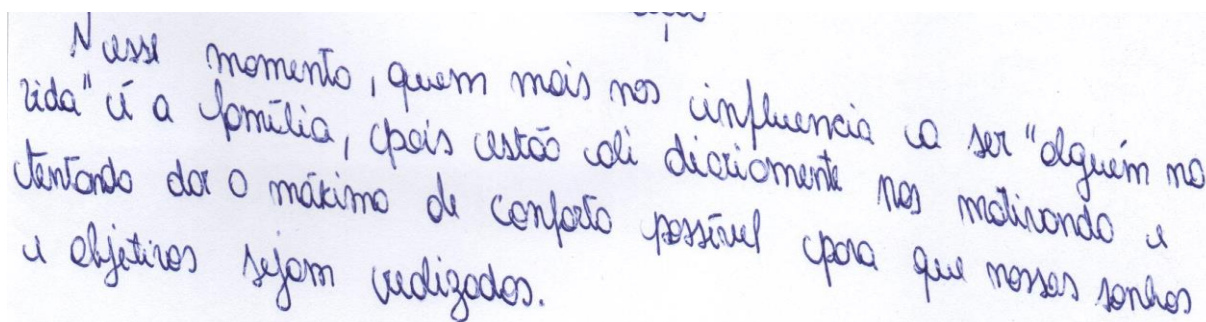 Nesse momento, quem mais nos influencia a ser "alguém na
vida" é a família, pois estão ali diariamente nos motivando e
tentando dar o máximo de conforto possível para que nossos sonhos
e objetivos sejam realizados.